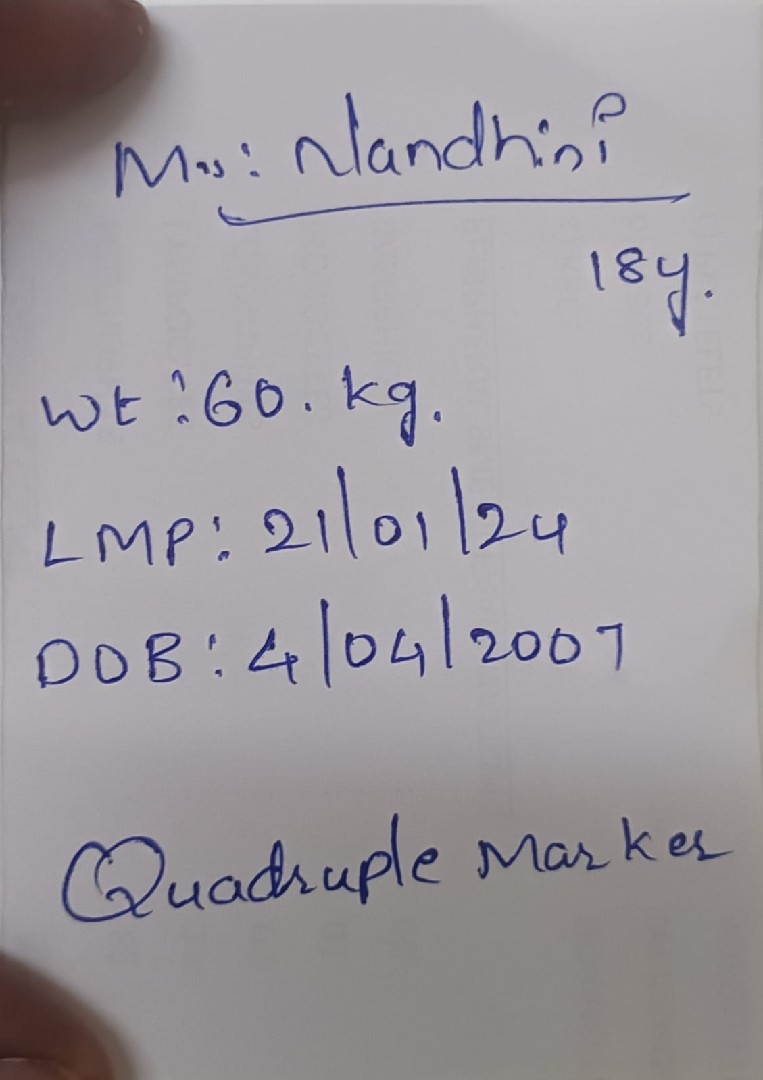 Mrs: Nandhini
18y.
Wt: 60. kg.
LMP: 21/01/24
DOB: 4/04/2007
Quadruple Marker